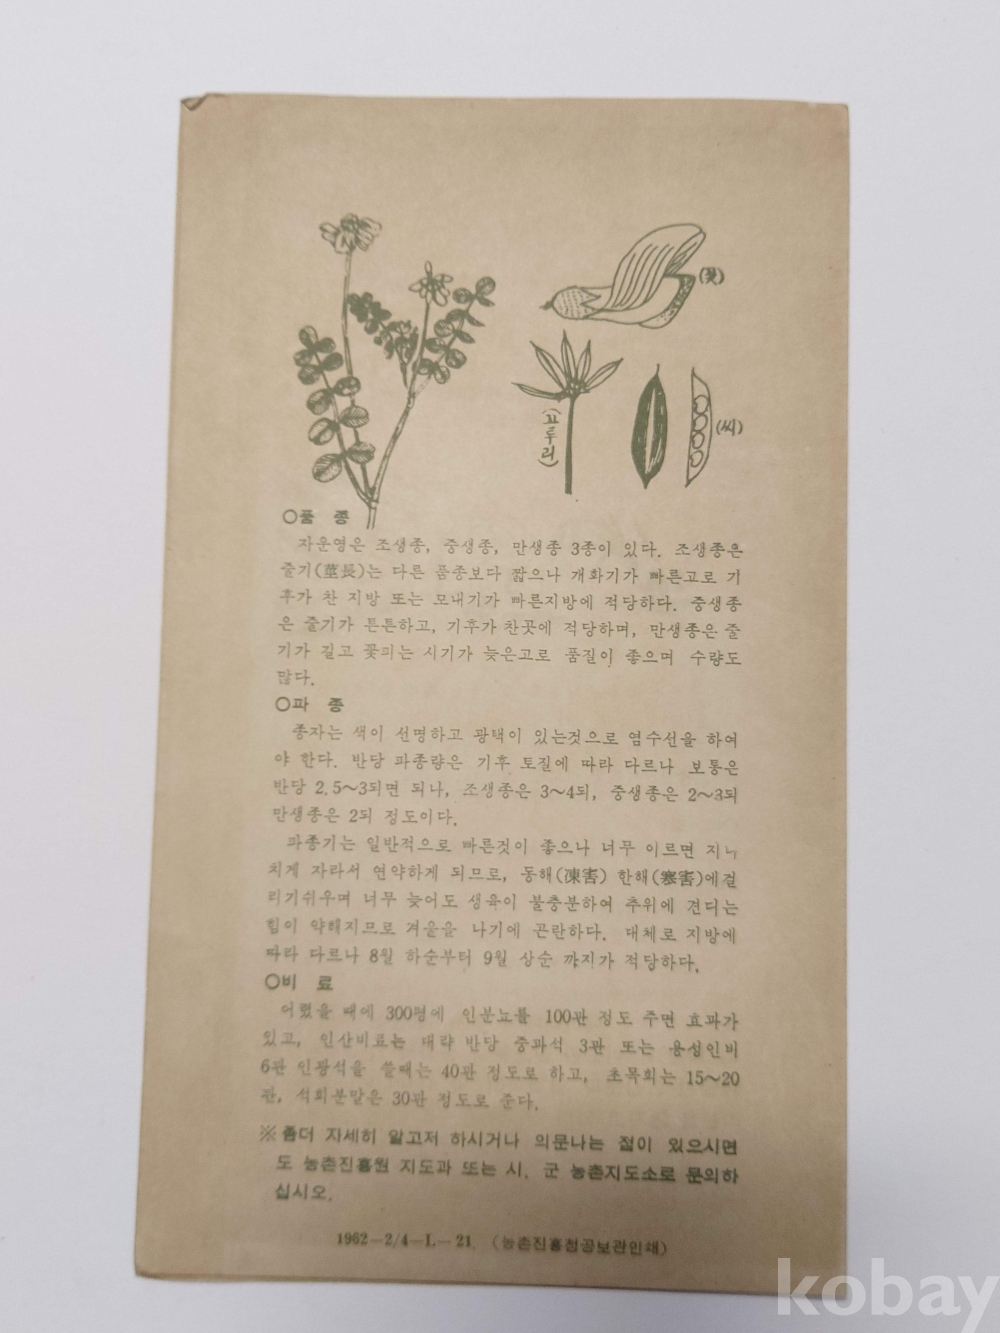 (꽃)
(꼬투리)
(씨)
○품 종
자운영은 조생종, 중생종, 만생종 3종이 있다. 조생종은
줄기(莖長)는 다른 품종보다 짧으나 개화기가 빠른고로 기
후가 찬 지방 또는 모내기가 빠른지방에 적당하다. 중생종
은 줄기가 튼튼하고, 기후가 찬곳에 적당하며, 만생종은 줄
기가 길고 꽃피는 시기가 늦은고로 품질이 좋으며 수량도
많다.
○파 종
종자는 색이 선명하고 광택이 있는것으로 염수선을 하여
야 한다. 반당 파종량은 기후 토질에 따라 다르나 보통은
반당 2.5～3되면 되나, 조생종은 3～4되, 중생종은 2～3되
만생종은 2되 정도이다.
파종기는 일반적으로 빠른것이 좋으나 너무 이르면 지나
치게 자라서 연약하게 되므로, 동해(凍害) 한해(寒害)에걸
리기쉬우며 너무 늦어도 생육이 불충분하여 추위에 견디는
힘이 약해지므로 겨울을 나기에 곤란하다. 대체로 지방에
따라 다르나 8월 하순부터 9월 상순 까지가 적당하다.
○비 료
어렸을 때에 300평에 인분뇨를 100관 정도 주면 효과가
있고, 인산비료는 대략 반당 중과석 3관 또는 용성인비
6관 인광석을 쓸때는 40관 정도로 하고, 초목회는 15～20
관, 석회분말은 30관 정도로 준다.
※좀더 자세히 알고저 하시거나 의문나는 점이 있으시면
도 농촌진흥원 지도과 또는 시. 군 농촌지도소로 문의하
십시오.
1962－2/4－L－21. (농촌진흥청공보관인쇄)
kobay